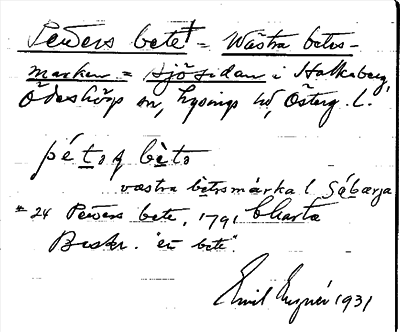 Peders betet = Västra betes-
marken = Sjösidan i Holkaberg,
Ödeshög sn, Lysings hd, Österg. l.
pétǝʂ bèto
västra bètǝsmárka l. Sǻbærja
* 24 Peders bete, 1791 Charta
Beskr. "en bete".
Emil 1931